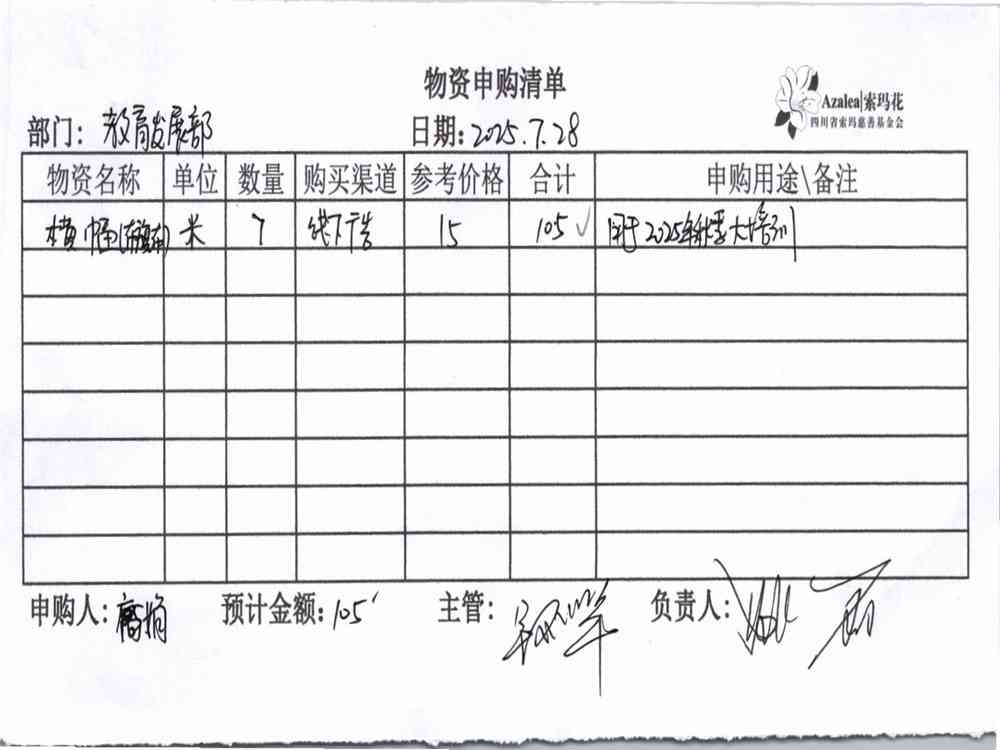 物资申购清单
Azalea|索玛花
四川省索玛慈善基金会
部门：教育发展部 日期：2025.7.28
物资名称 单位 数量 购买渠道 参考价格 合计 申购用途\备注
横幅 米 7 线下广告 15 105 用于2025年秋季大培训
申购人： 预计金额：105 主管： 负责人：